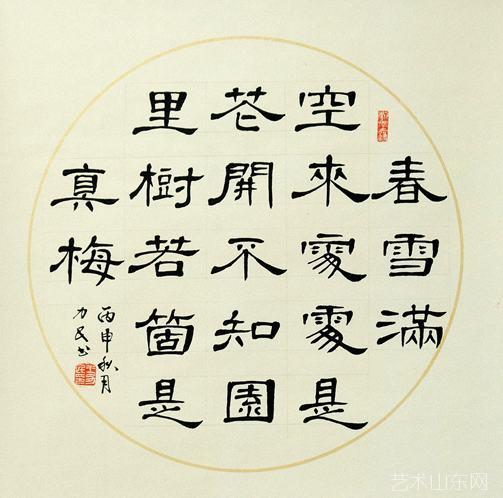 春雪滿
空來處處是
花開不知園
里樹若箇是
真梅
丙申秋月
力民书
艺术山东网